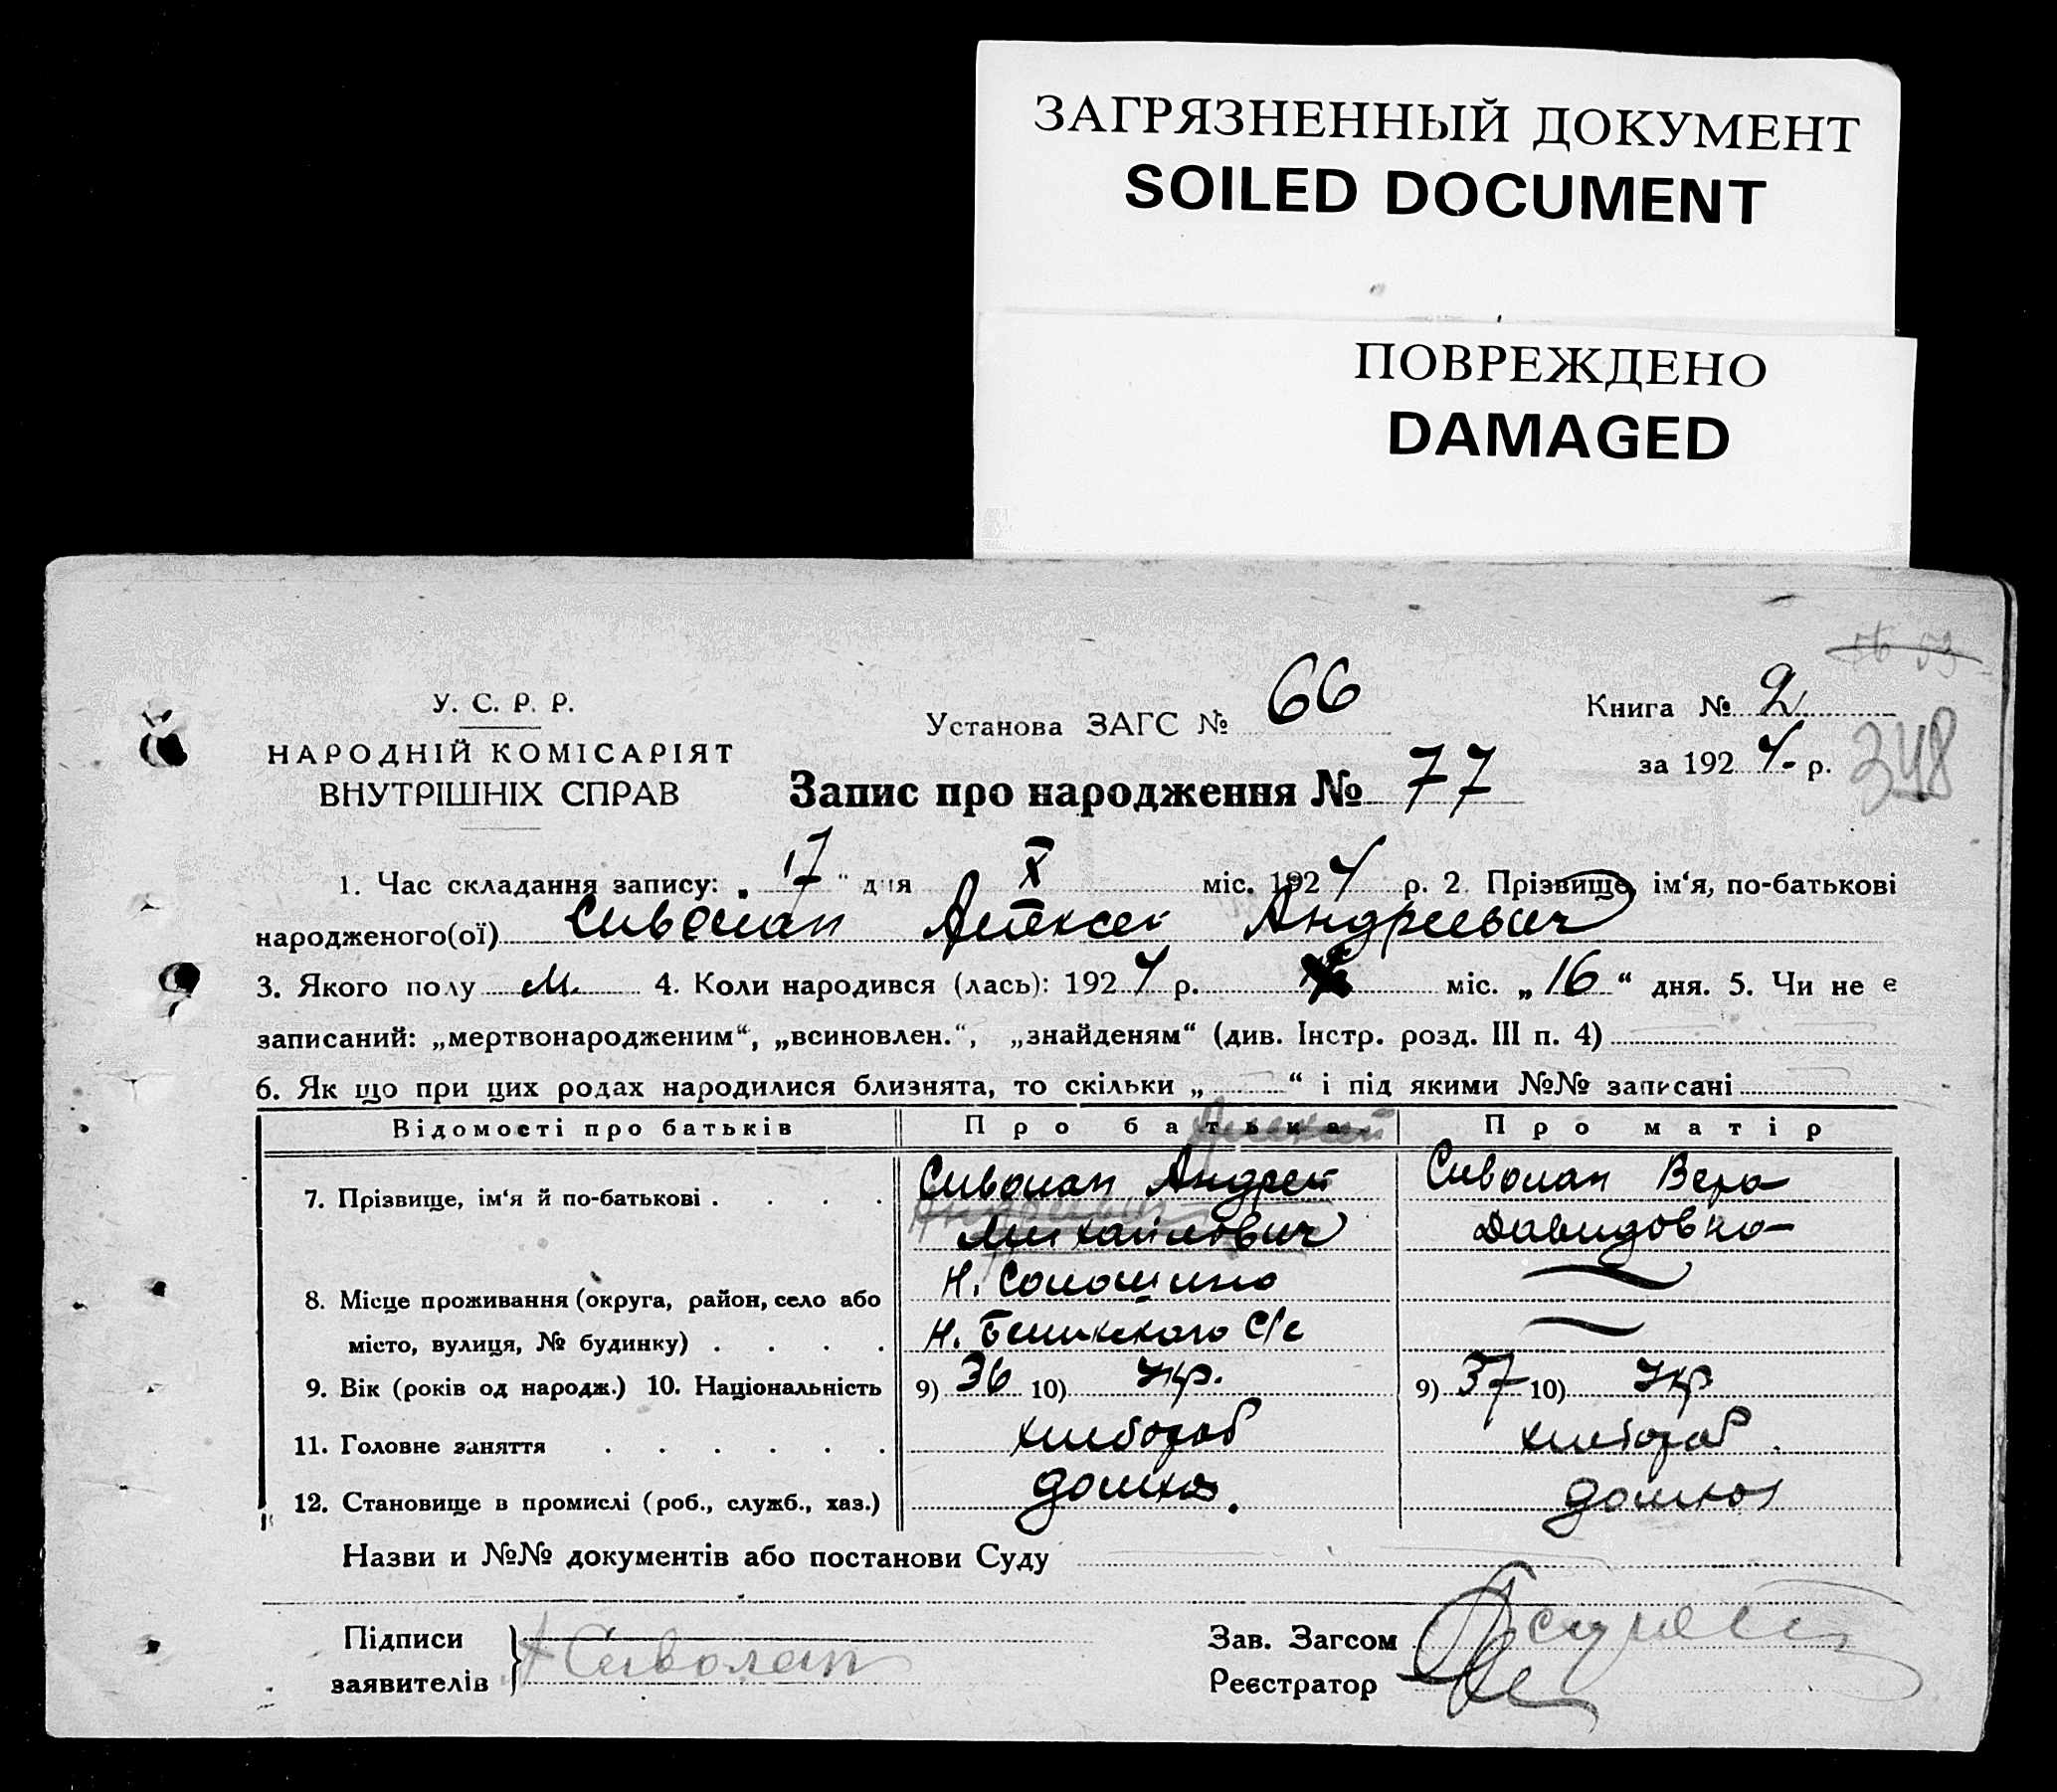 ЗАГРЯЗНЕННЫЙ ДОКУМЕНТ
SOILED DOCUMENT
ПОВРЕЖДЕНО
DAMAGED
56 53
У. С. Р. Р.
НАРОДНІЙ КОМІСАРІЯТ
ВНУТРІШНІХ СПРАВ
Установа ЗАГС № 66
Книга № 2
за 1924 р.
348
Запис про народження № 77
1. Час складання запису: „17“ дня X міс. 1924 р. 2. Прізвище, ім‘я, по-батькові
народженого(ої) Сиволап Алексей Андреевич
3. Якого полу м. 4. Коли народився (лась): 1924 р. міс. „16“ дня. 5. Чи не є
записаний: „мертвонародженим“, „всиновлен.“, „знайденям“ (див. Інстр. розд. III п. 4)
6. Як що при цих родах народилися близнята, то скільки „ “ і під якими №№ записані
Відомості про батьків Про батька Про матір
Алексей
7. Прізвище, ім‘я й по-батькові . . . . Сиволап Андрей Сиволап Вера
Андреевич
Михайлович Давидовна
8. Місце проживання (округа, район, село або Н. Солошино
місто, вулиця, № будинку) . . . . Н. С/с
9. Вік (років од народж.) 10. Національність 9) 36 10) Укр. 9) 37 10) Укр
11. Головне заняття . . . . . . хлебороб хлебороб
12. Становище в промислі (роб., служб., хаз.)
Назви и №№ документів або постанови Суду
Підписи
заявителів
А Сиволап
Зав. Загсом
Реєстратор